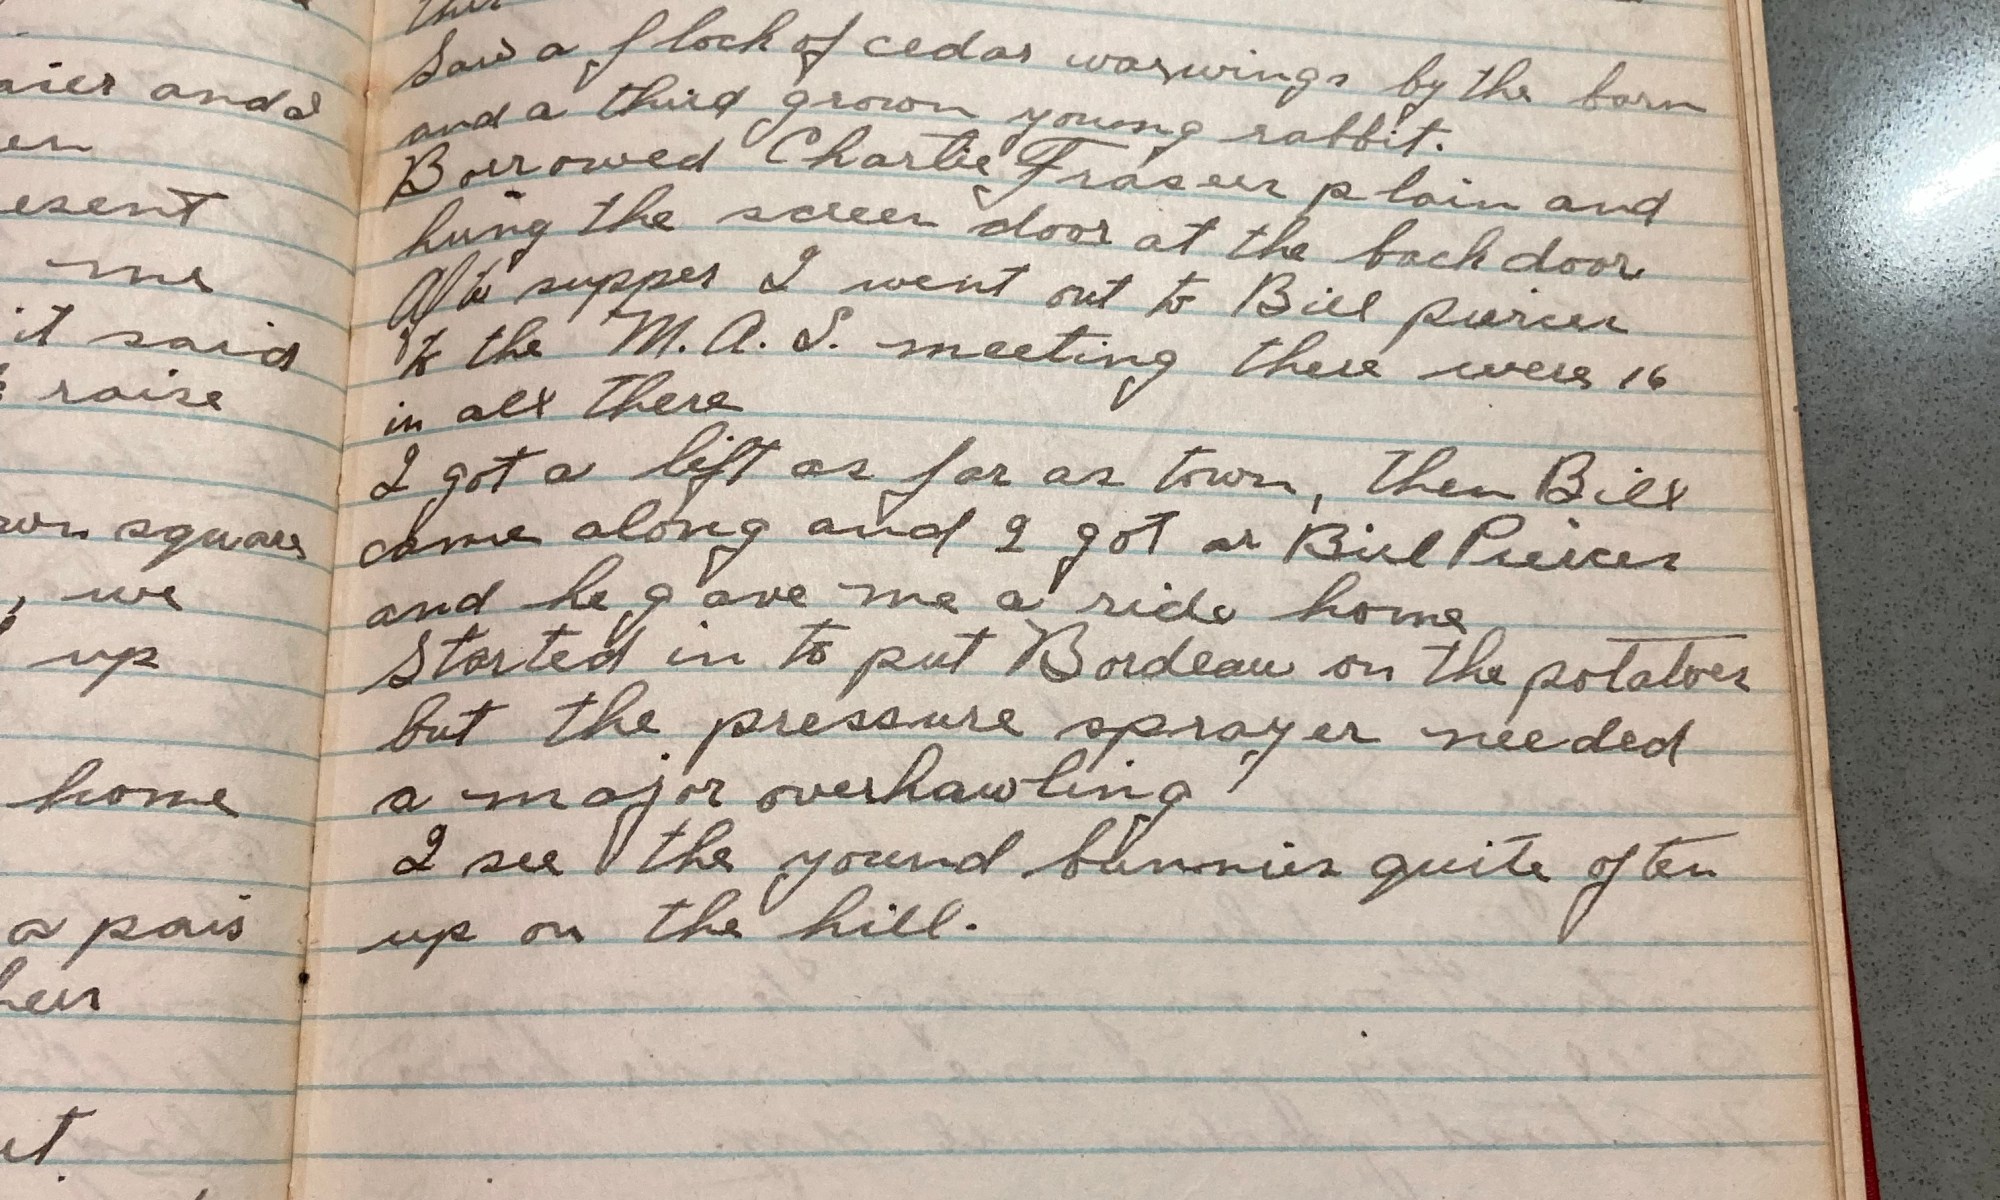 aier and I
en
esent
me
it said
raise
own square
, we
up
home
a pair
heir
ut.
Saw a flock of cedar waxwings by the barn
and a third grown young rabbit.
Borrowed Charlie Frasers plain and
hung the screen door at the back door
After supper I went out to Bill piercers
to the M. A. S. meeting there were 16
in all there
I got a lift as far as town, then Bill
came along and I got as Bill Piercers
and he gave me a ride home
Started in to put Bordeau on the potatoes
but the pressure sprayer needed
a major overhawling
I see the yound bunnies quite often
up on the hill.